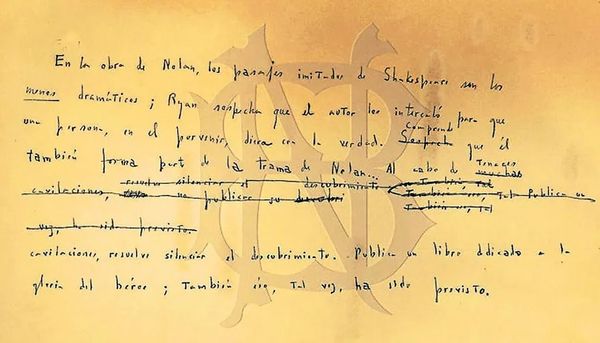 En la obra de Nolan, los pasajes imitados de Shakespeare son los
menos dramáticos; Ryan sospecha que el autor los intercaló para que
una persona, en el porvenir, diera con la verdad. Sospecha Comprende que él
también forma part de la trama de Nolan... Al cabo de muchas Tenaces
cavilaciones, resuelve silenciar el descubrimiento no publicar su también, tal También eso, tal Publica un también, tal
vez, ha sido previsto.
cavilaciones, resuelve silenciar el descubrimiento. Publica un libro ddicado a la
gloria del héroe; también eso, tal vez, ha sido previsto.